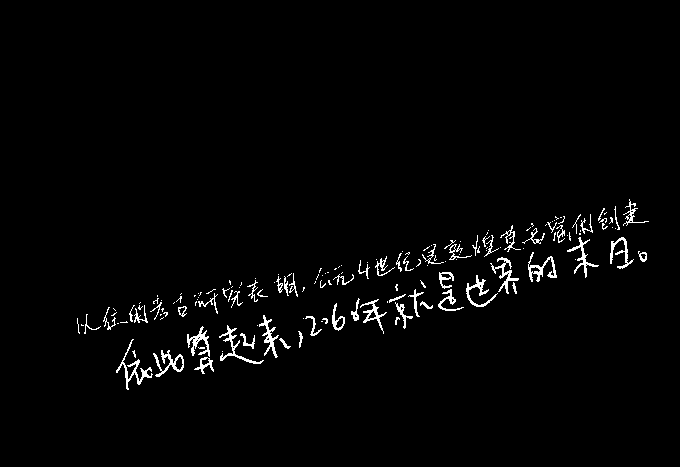 以往的考古研究表明,公元4世纪是敦煌莫高窟俐创建
依此算起来,2060年就是世界的末日。